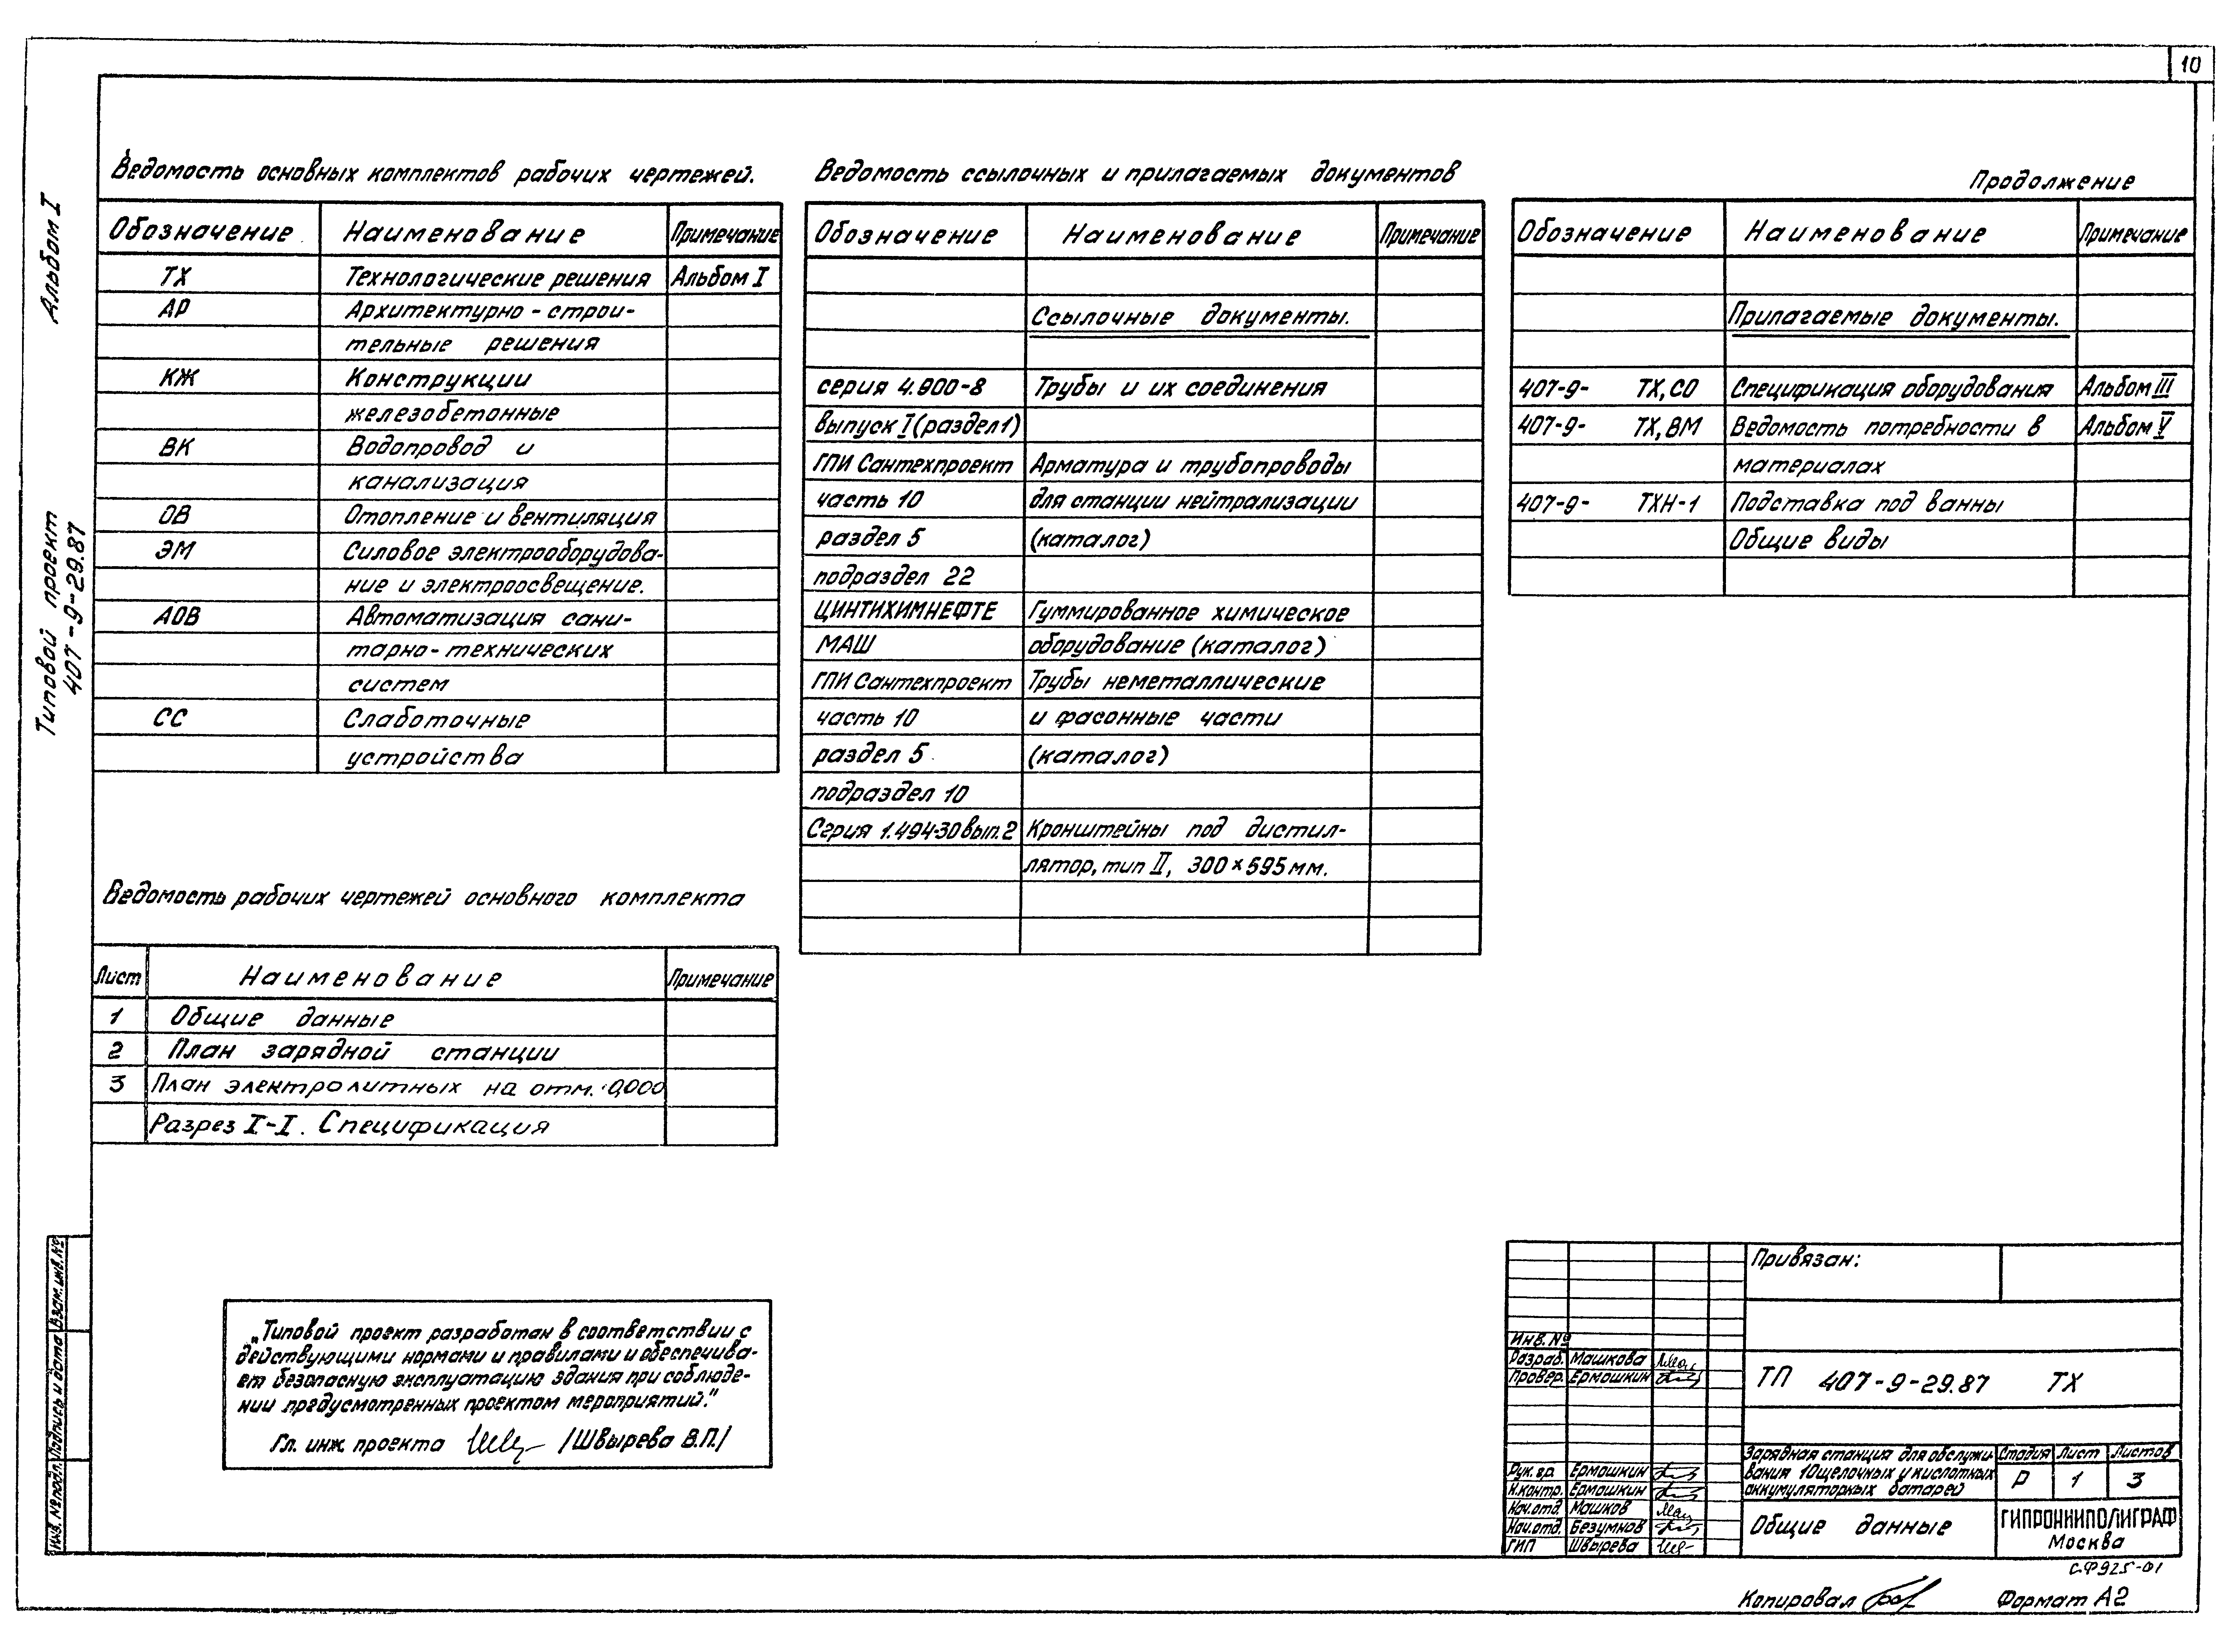 10
Альбом I
Типовой проект
407-9-29.87
Ведомость основных комплектов рабочих чертежей.
Обозначение Наименование Примечание
ТХ Технологические решения Альбом I
АР Архитектурно-строи-
тельные решения
КЖ Конструкции
железобетонные
ВК Водопровод и
канализация
ОВ Отопление и вентиляция
ЭМ Силовое электрооборудова-
ние и электроосвещение.
АОВ Автоматизация сани-
тарно-технических
систем
СС Слаботочные
устройства
Ведомость рабочих чертежей основного комплекта
Лист Наименование Примечание
1 Общие данные
2 План зарядной станции
3 План электролитных на отм. 0,000
Разрез I-I. Спецификация
Ведомость ссылочных и прилагаемых документов
Обозначение Наименование Примечание
Ссылочные документы.
серия 4.900-8 Трубы и их соединения
выпуск I (раздел 1)
ГПИ Сантехпроект Арматура и трубопроводы
часть 10 для станции нейтрализации
раздел 5 (каталог)
подраздел 22
ЦИНТИХИМНЕФТЕ Гуммированное химическое
МАШ оборудование (каталог)
ГПИ Сантехпроект Трубы неметаллические
часть 10 и фасонные части
раздел 5 (каталог)
подраздел 10
Серия 1.494-30 вып. 2 Кронштейны под дистил-
лятор, тип II, 300×595 мм.
Продолжение
Обозначение Наименование Примечание
Прилагаемые документы.
407-9- ТХ, СО Спецификация оборудования Альбом III
407-9- ТХ, ВМ Ведомость потребности в Альбом V
материалах
407-9- ТХН-1 Подставка под ванны
Общие виды
„Типовой проект разработан в соответствии с
действующими нормами и правилами и обеспечива-
ет безопасную эксплуатацию здания при соблюде-
нии предусмотренных проектом мероприятий."
Гл. инж. проекта /Швырева В.П./
Инв. № подл. Подпись и дата Взам. инв. №
Привязан:
Инв. №
Разраб. Машкова
Провер. Ермошкин
ТП 407-9-29.87 ТХ
Рук. гр. Ермошкин
Н. контр. Ермошкин
Нач. отд. Машков
Нач. отд. Безумнов
ГИП Швырева
Зарядная станция для обслужи-
вания 10 щелочных и кислотных
аккумуляторных батарей
Стадия Лист Листов
Р 1 3
Общие данные
ГИПРОНИИПОЛИГРАФ
Москва
СФ925-01
Копировал
Формат А2